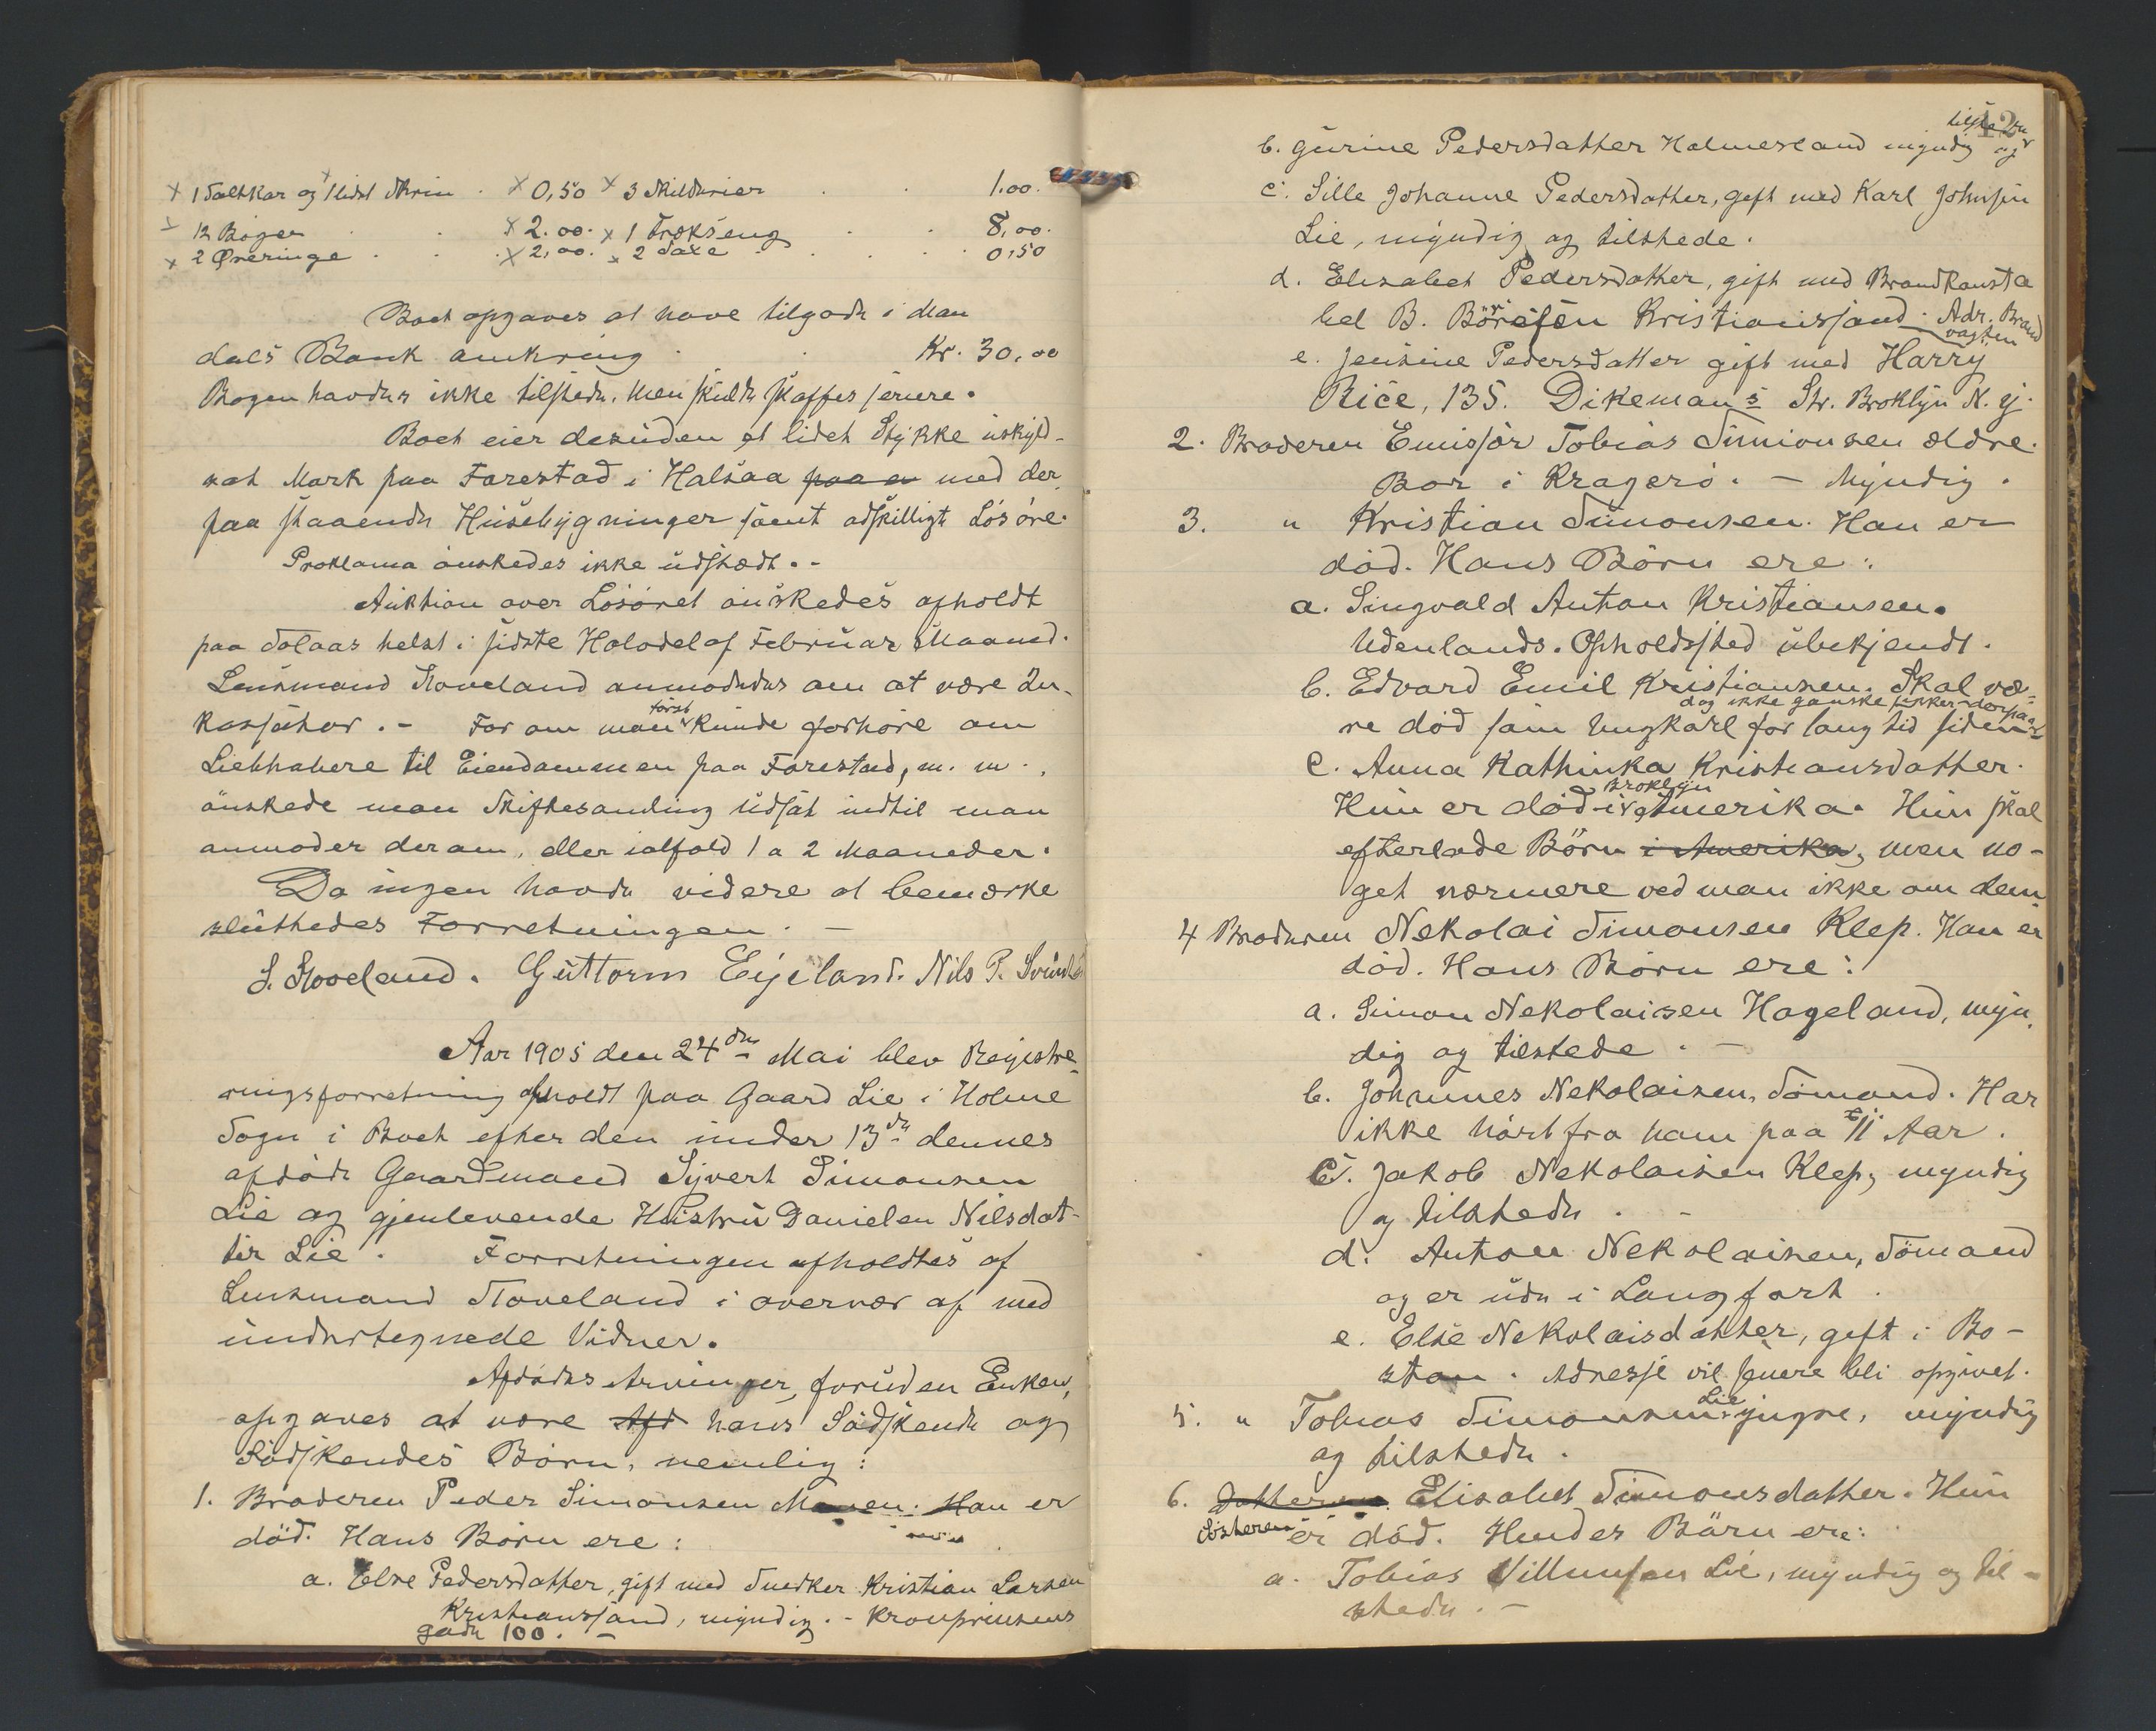 x 1 Saltkar og 1 lidet Skrin . x 0,50 x 3 Skilderier . . 1.00.
x 12 Böger . . x 2.00. x 1 Trækseng . . 8,00.
x 2 Öreringe . . x 2,00. x 2 Saxe . . . 0,50
Boet opgaves at have tilgode i Man
dals Bank omkring . . Kr. 30,00
Bogen havdes ikke tilstede, men skulde skaffes senere.
Boet eier desuden et lidet Stykke uskyld-
sat Mark paa Farestad i Halsaa paa en med der
paa staaende Husebygninger samt adskilligt Lösöre.
Proklama önskedes ikke udstædt. -
Auktion over Lösöret önskedes afholdt
paa Tolaas helst i sidste Halvdel af Februar Maaned.
Lensmand Stoveland anmodedes om at være In-
kassator. - For om man först kunde forhöre om
Liebhabere til Eiendommen paa Farestad, m. m.,
önskede man Skiftesamling udsat indtil man
anmoder derom, eller ialfald 1 a 2 Maaneder.
Da ingen havde videre at bemærke
sluttedes Forretningen. -
S. Stoveland. Guttorm Eyeland. Nils P.
Aar 1905 den 24de Mai blev Registre-
ringsforretning afholdt paa Gaard Lie i Holme
Sogn i Boet efter den under 13de dennes
afdöde Gaardmand Syvert Simonsen
Lie og gjenlevende Hustru Danielen Nilsdat-
ter Lie. Forretningen afholdtes af
Lensmand Stoveland i overvær af med
undertegnede Vidner.
Afdödes Arvinger, foruden Enken,
opgaves at være Afd hans Södskende og
Södskendes Börn, nemlig:
1. Broderen Peder Simonsen Han er
död. Hans Börn ere:
a. Else Pedersdatter, gift med Snedker Kristian Larsen
Kristianssand, myndig. - Kronprinsens
gade 100. -
12
tilstede
b. Gurine Pedersdatter Halmesland myndig og
c. Sille Johanne Pedersdatter, gift med Karl Johnsen
Lie, myndig og tilstede.
d. Elisabet Pedersdatter, gift med Brandkonsta
bel B. Börresen Kristianssand. Adr. Brand
vagten
e. Jensine Pedersdatter gift med Harry
Rice, 135. Dikemans Str. Broklyn N. Y.
2. Broderen Emissör Tobias Simonsen ældre.
Bor i Kragerö. - Myndig.
3. " Kristian Simonsen. Han er
död. Hans Börn ere:
a. Singvald Anton Kristiansen.
Udenlands. Opholdsted ubekjendt.
b. Edvard Emil Kristiansen. Skal væ-
dog ikke ganske sikker derpaa
re död som Ungkarl for lang tid siden
c. Anna Kathinka Kristiansdatter.
Broklyn
Hun er död i Amerika. Hun skal
efterlade Börn i Amerika, men no-
get nærmere ved man ikke om dem
4 Broderen Nekolai Simonsen Klep. Han er
död. Hans Börn ere:
a. Simon Nekolaisen Hageland, myn
dig og tilstede. -
b. Johannes Nekolaisen, Sömand. Har
ikke hört fra ham paa 11 Aar.
c. Jakob Nekolaisen Klep, myndig
og tilstede. -
d. Anton Nekolaisen, Sömand
og er ude i Langfart.
e. Else Nekolaisdatter, gift i Bo-
ston. Adresse vil senere bli opgivet.
5. " Tobias Simonsen Lie yngre, myndig
og tilstede.
6. Datteren Elisabet Simonsdatter. Hun
Sösteren er död. Hendes Börn ere:
a. Tobias Villumsen Lie, myndig og til-
stede. -